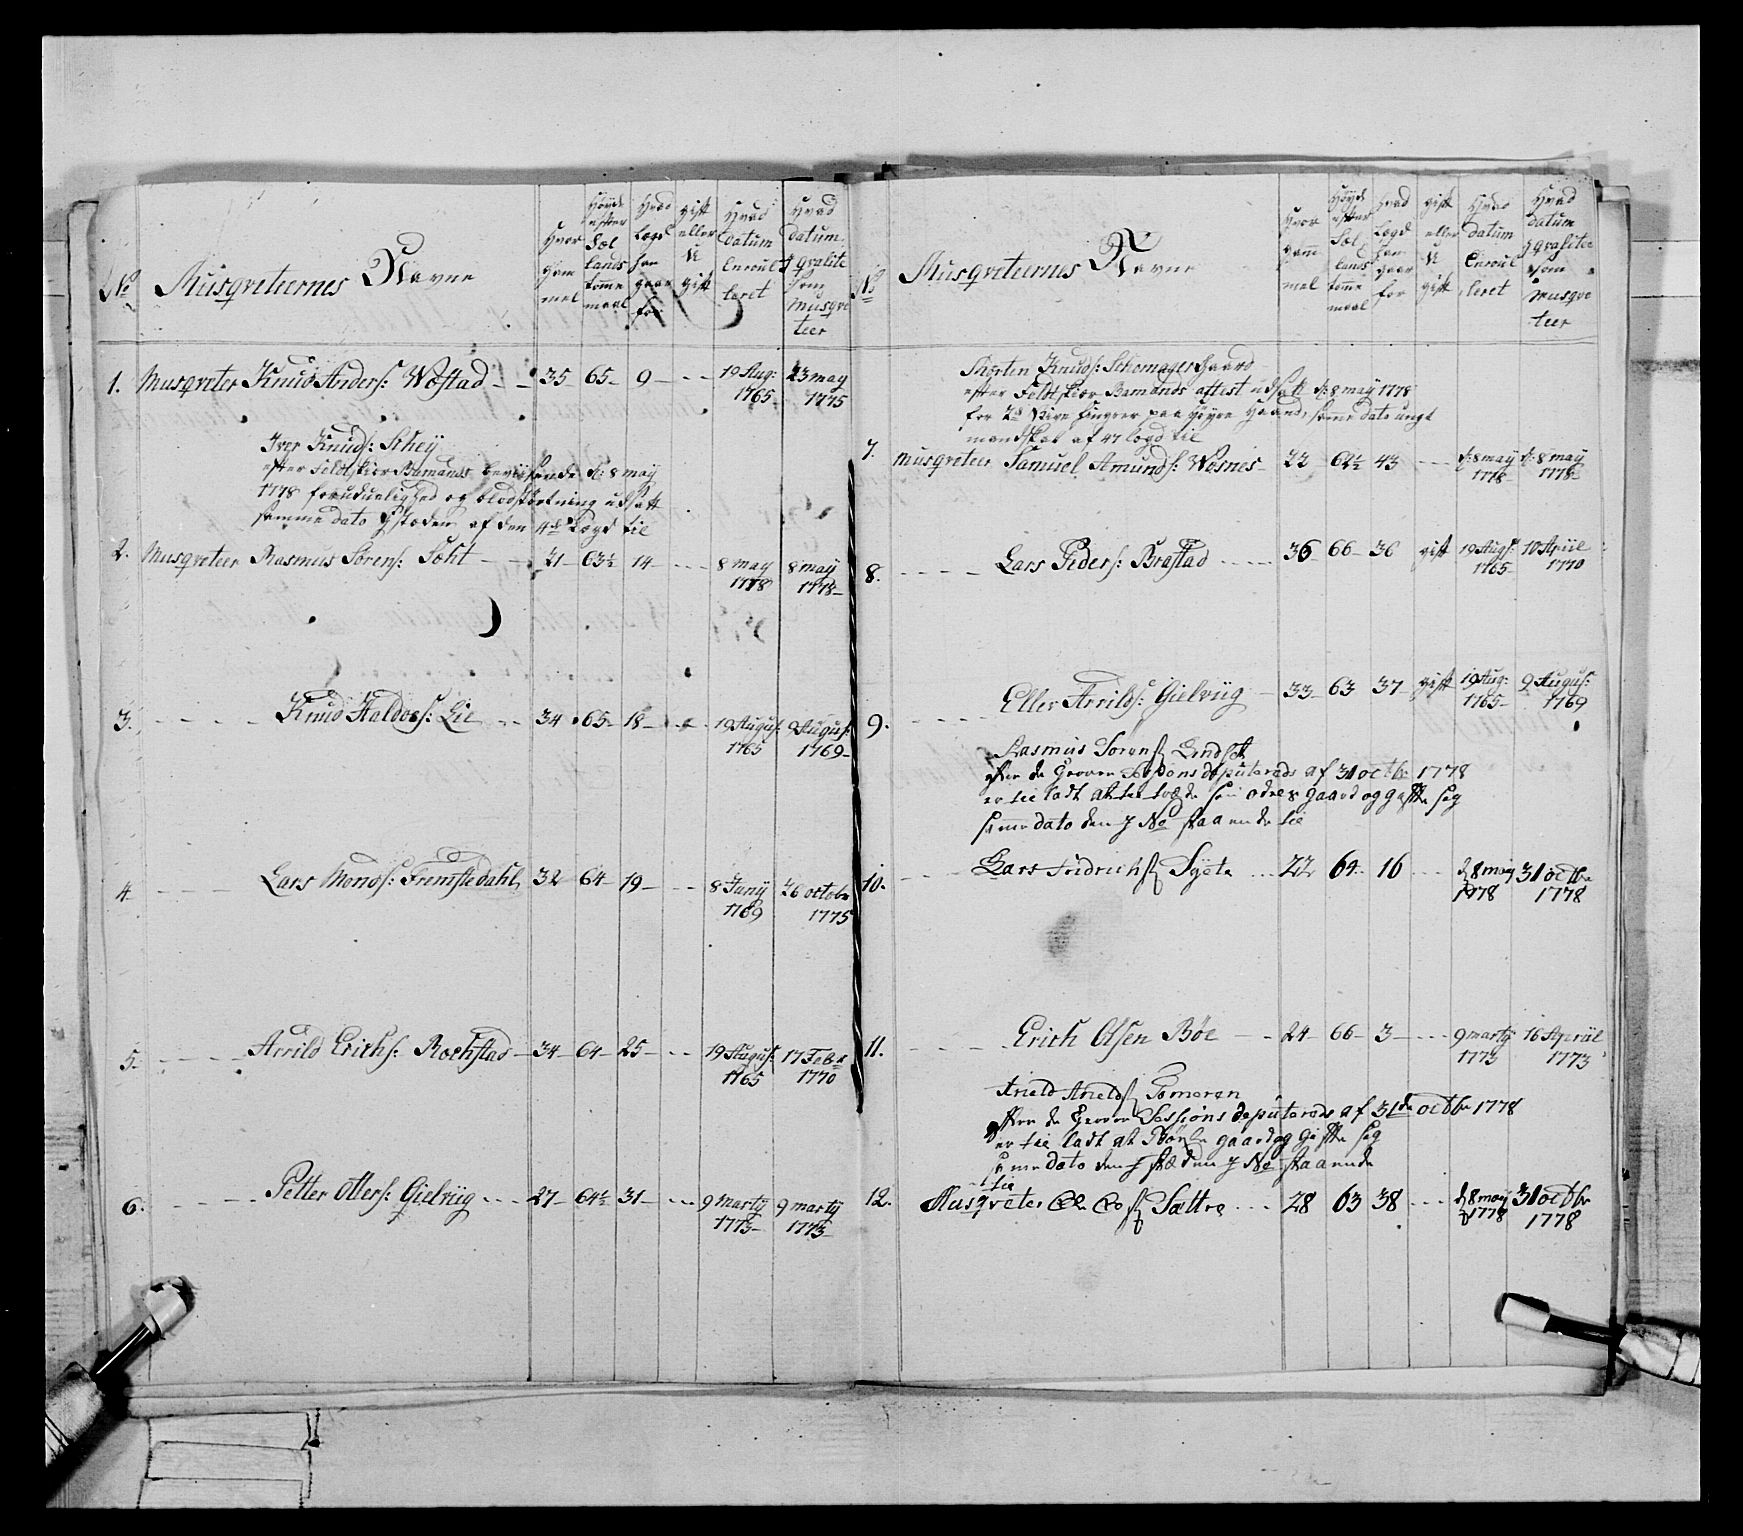 No
Musqveteernes Navne
Hvor gam mel
Høyde efter Sæl lands tomme maal
Hvad Lægd han gaar for
gift eller U gift
Hvad datum Enroul leret
Hvad datum J qvalite som Musqve teer
1. Musqveter Knud Anders: Westad 35 65 9 19 Aug: 1765 23 may 1775
Iver Knuds: Schey
efter Feldtskior Bamands beviisende d: 8 may
1778 for uduelighed og blodstørtning udsatt
samme dato J stæden af den 4de Lægd til
2. Musqveteer Rasmus Sørens: 21 63½ 14 8 may 1778 8 may 1778
3. Knud Haldors: Lie 34 65 18 19 Augus: 1765 9 Augus: 1769
4. Lars Monds: Fremstedahl 32 64 19 8 Junij 1769 26 octobr 1775
5. Arrild Erichs: Rochstad 34 64 25 19 Augus: 1765 17 Febr 1770
6. Petter Ollers: Gielviig 27 64½ 31 9 Marty 1773 9 marty 1773
No
Musqveteernes Navne
Hvor gam mel
Høyde efter Sæl lands tomme maal
Hvad Lægd han gaar for
gift eller U gift
Hvad datum Enroul leret
Hvad datum J qvalitee som Musqve teer
Morten Knuds:
efter Feldtskior Bamands attest udsatt d: 8 may 1778
for 2de Stive fingrer paa høyre Haand, samme dato ungt
mandskab af 47 lægd til
7. Musqveteer Samuel Amunds: Wesnes 22 62½ 43 d: 8 may 1778 d: 8 may 1778
8. Lars Peders: Brastad 36 66 36 gift 19 Augs: 1765 10 Apriil 1770
9. Eller Arrilds: Gielviig 33 63 37 gift 19 Aug: 1765 9 Augus: 1769
Rasmus Sørens: Lindset
efter de Herrer Sessions deputereds af 31 octbr 1778
er til ladt at til træde sin odels gaard og gifte sig
samme dato den J No staaende til
10. Lars Fridrichs: 22 64 16 d 8 may 1778 31 octbr 1778
11. Erich Olsen Böe 24 66 3 9 marty 1773 16 Apriil 1773
Arield Arields: Gomeren
efter de Herrer Sessions deputereds af 31de octbr 1778
er til ladt at gaard og gifte sig
samme dato den J stæden J No staaende
til
12. Musqveter Ole Ols: Sættre 28 63 38 d 8 may 1778 31 octbr 1778